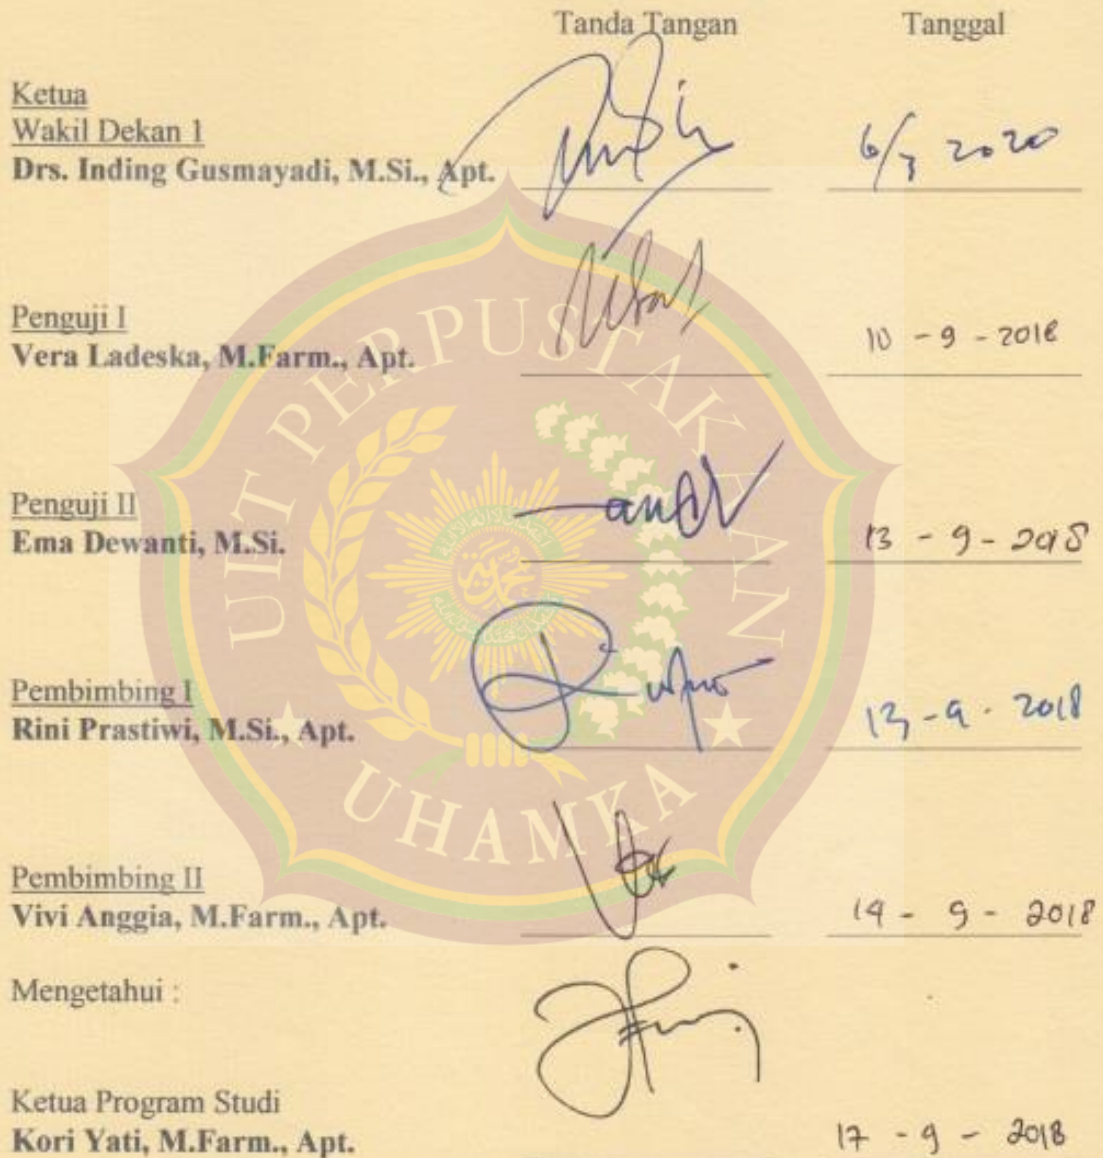 Tanda Tangan Tanggal
Ketua
Wakil Dekan 1
Drs. Inding Gusmayadi, M.Si., Apt. 6/3 2020
Penguji I
Vera Ladeska, M.Farm., Apt. 10 - 9 - 2018
Penguji II
Ema Dewanti, M.Si. 13 - 9 - 2018
Pembimbing I
Rini Prastiwi, M.Si., Apt. 13 - 9 - 2018
Pembimbing II
Vivi Anggia, M.Farm., Apt. 14 - 9 - 2018
Mengetahui :
Ketua Program Studi
Kori Yati, M.Farm., Apt. 17 - 9 - 2018
UIT PERPUSTAKAAN
UHAMKA